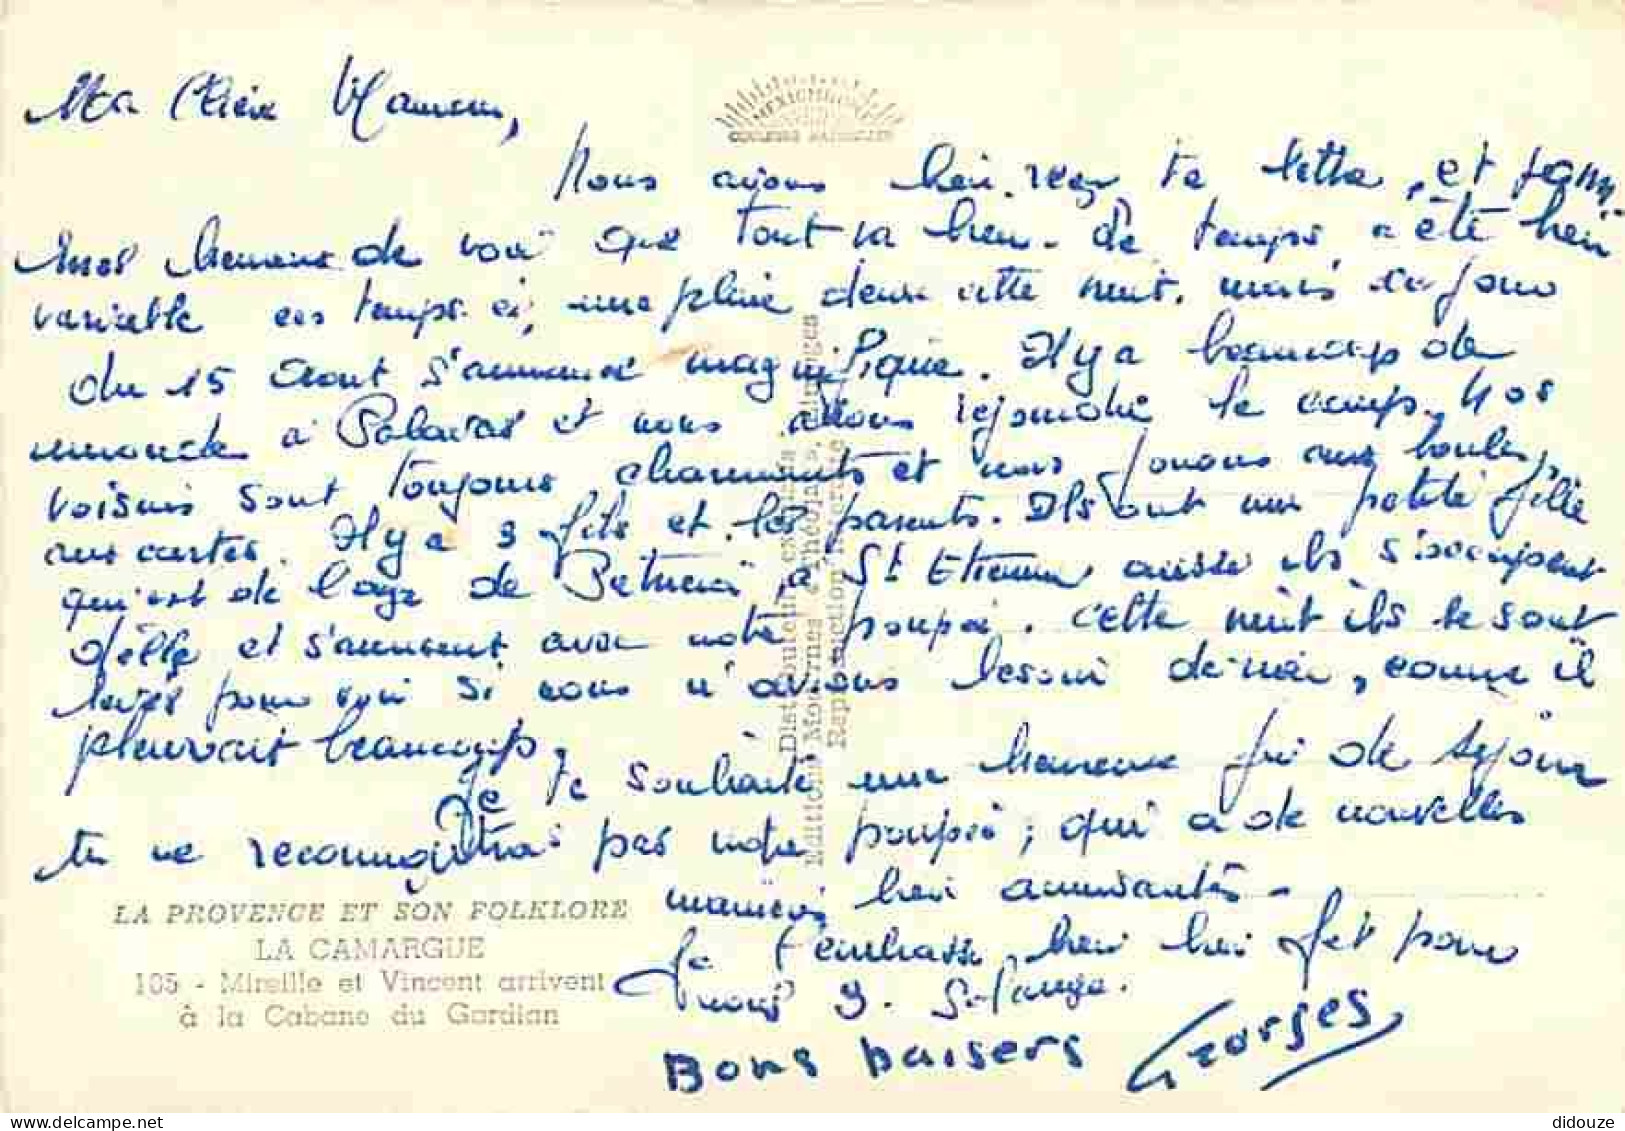 Ma Chère Maman,
MEXICHROME
COULEURS NATURELLES
Nous avons bien reçu ta lettre, et sommes
heureux de voir que tout va bien. Le temps a été bien
variable ces temps ci, une pluie cette nuit. mais le jour
du 15 Aout s'annonce magnifique. Il y a beaucoup de
monde à Palavas et nous allons rejoindre le camp. Nos
voisins sont toujours charmants et nous jouons aux boules,
aux cartes. Il y a 3 fils et les parents. Ils ont une petite fille
qui est de l'age de à St Etienne aussi ils s'occupent
d'elle et s'amusent avec notre poupée. Cette nuit ils se sont
levés pour voir si nous n'avions besoin de rien, comme il
pleuvait beaucoup.
Je te souhaite une heureuse fin de séjour
tu ne reconnaitras pas notre poupée, qui a de nouvelles
manières bien amusantes.
Je t'embrasse bien bien fort pour
nous 3. Solange.
Bons baisers Georges
LA PROVENCE ET SON FOLKLORE
LA CAMARGUE
105 - Mireille et Vincent arrivent
à la Cabane du Gardian
Editions Modernes Théojac, Limoges
Reproduction interdite
didouze